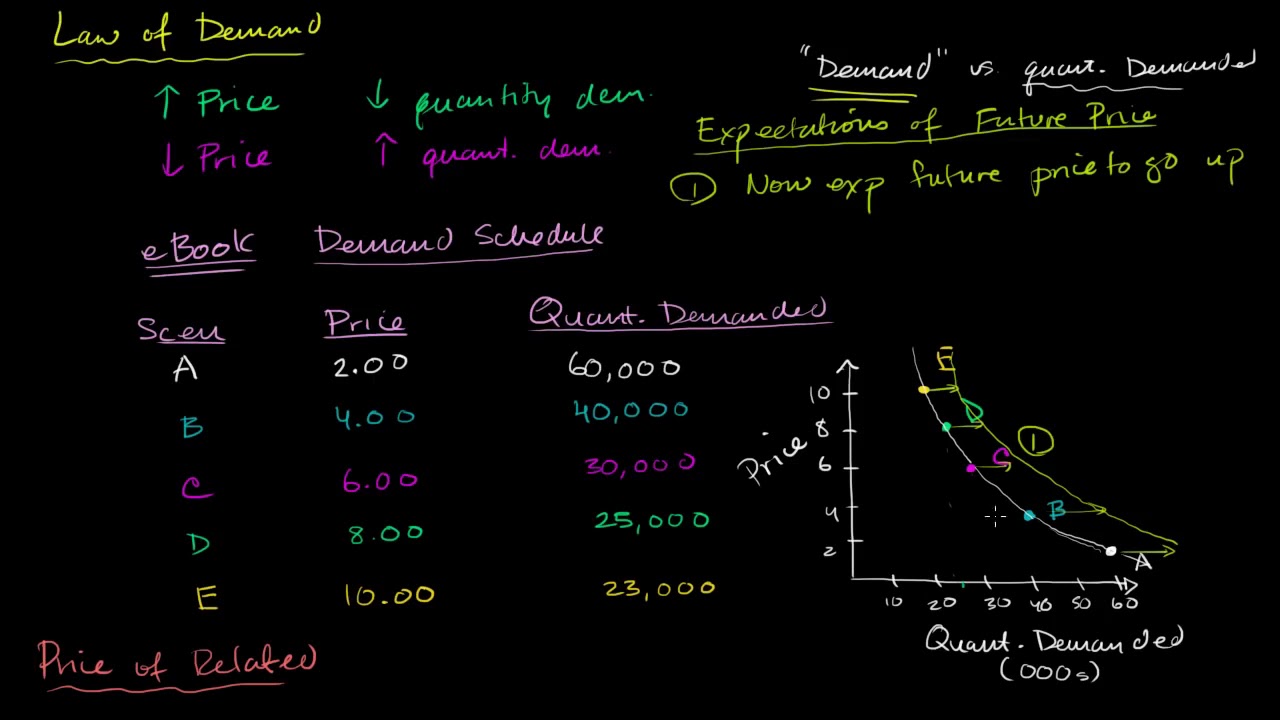 Law of Demand
↑ Price ↓ quantity dem.
↓ Price ↑ quant. dem.
"Demand" vs. quant. Demanded
Expectations of Future Price
① Now exp future price to go up
eBook Demand Schedule
Scen Price Quant. Demanded
A 2.00 60,000
B 4.00 40,000
C 6.00 30,000
D 8.00 25,000
E 10.00 23,000
Price of Related
E
10
D
8
①
Price
6
C
4
B
2
A
10 20 30 40 50 60
Quant. Demanded
(000s)